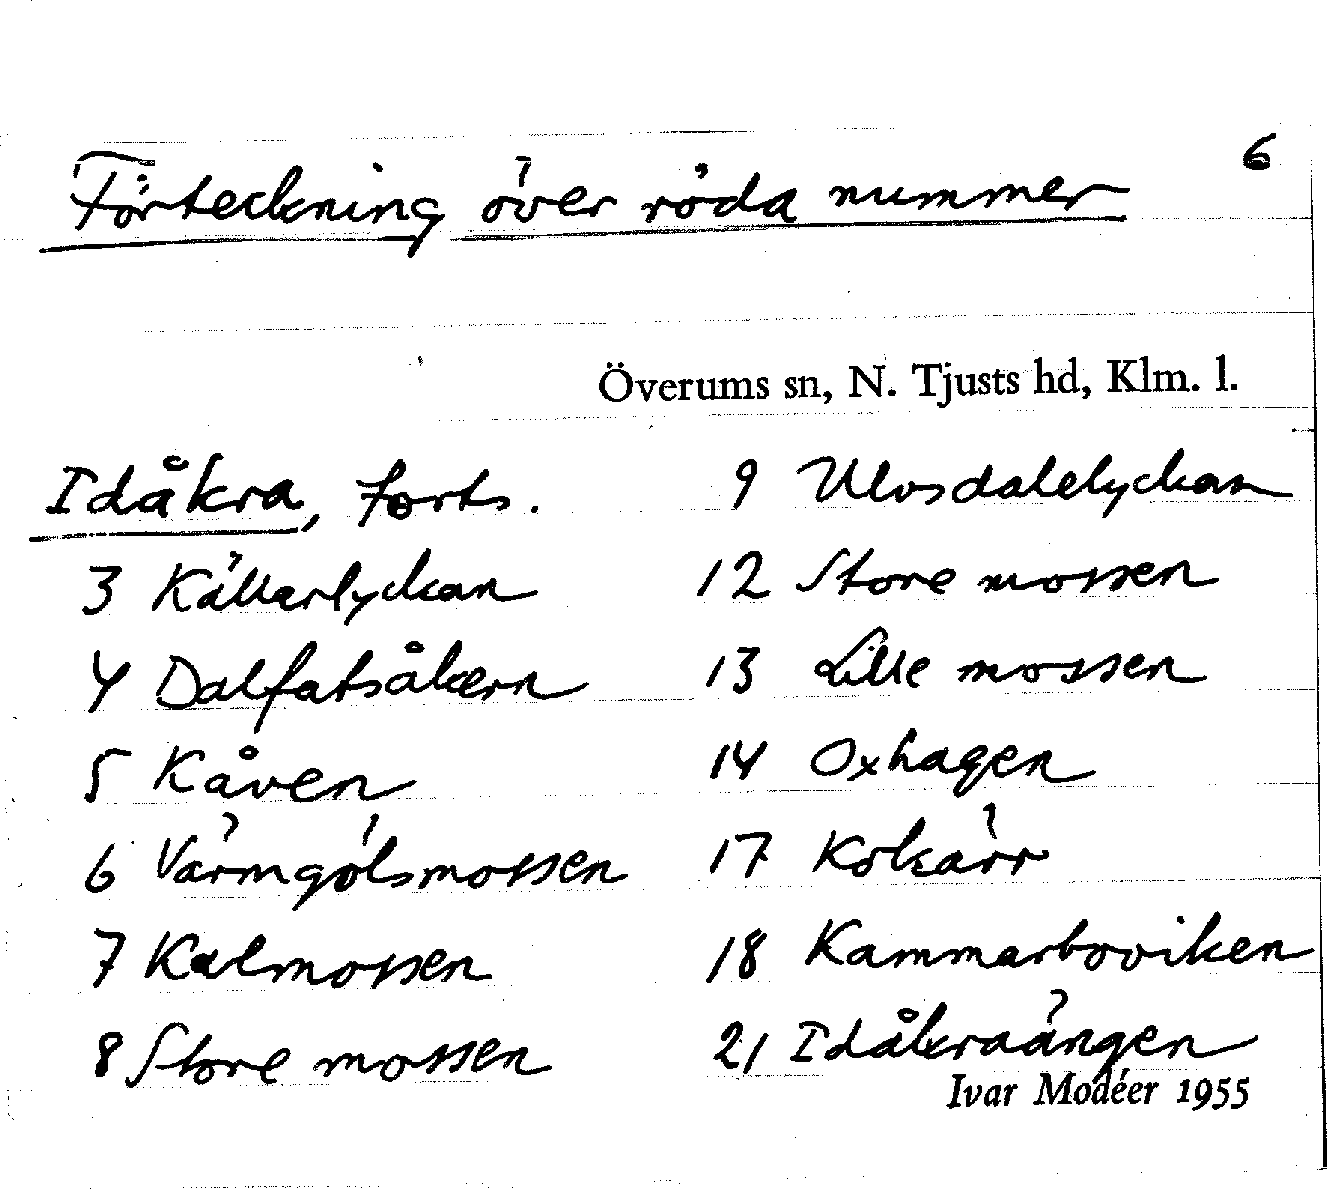 6
Förteckning över röda nummer
Överums sn, N. Tjusts hd, Klm. l.
Idåkra, forts.
3 Källarlyckan
4 Dalfatsåkern
5 Kåven
6 Värmgölsmossen
7 Kalmossen
8 Store mossen
9 Ulvsdalelyckan
12 Store mossen
13 Lille mossen
14 Oxhagen
17 Kokärr
18 Kammarboviken
21 Idåkraängen
Ivar Modéer 1955